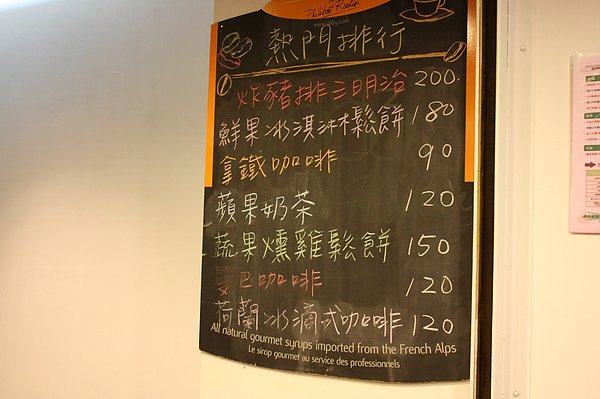 Philibert Routin
熱門排行
炸豬排三明治 200
鮮果冰淇淋鬆餅 180
拿鐵咖啡 90
蘋果奶茶 120
蔬果燻雞鬆餅 150
曼巴咖啡 120
荷蘭冰滴式咖啡 120
All natural gourmet syrups imported from the French Alps
Le sirop gourmet au service des professionnels